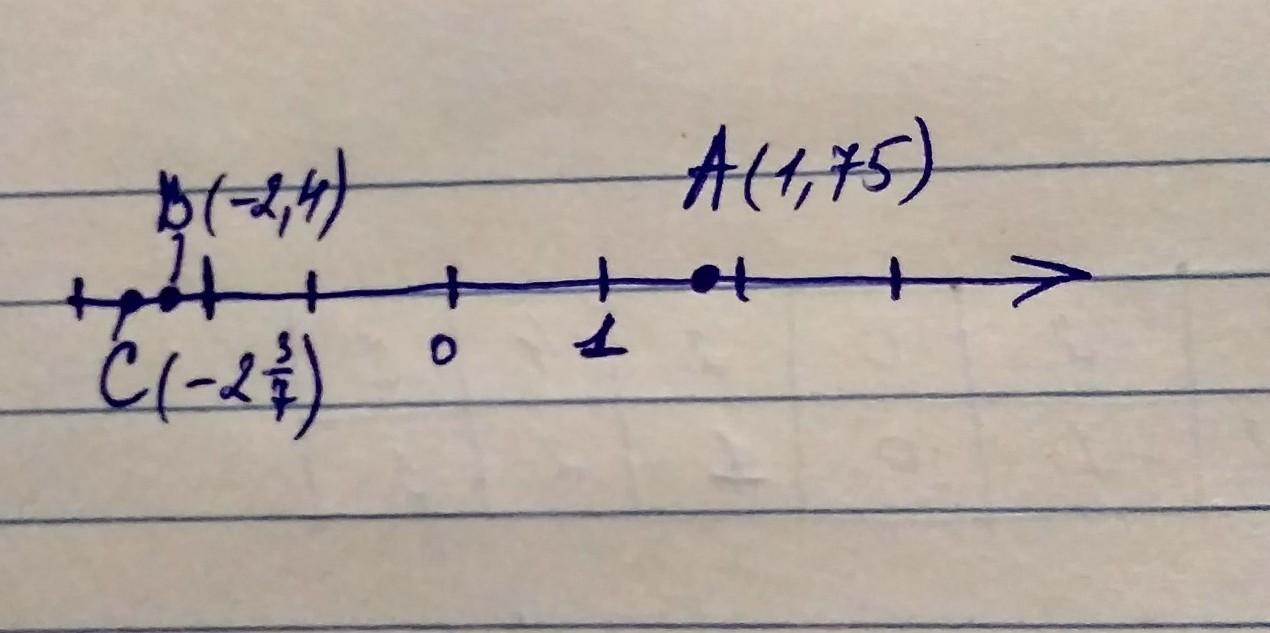 A(1,75)
B(-2,4)
0 1
C(-2 3/7)